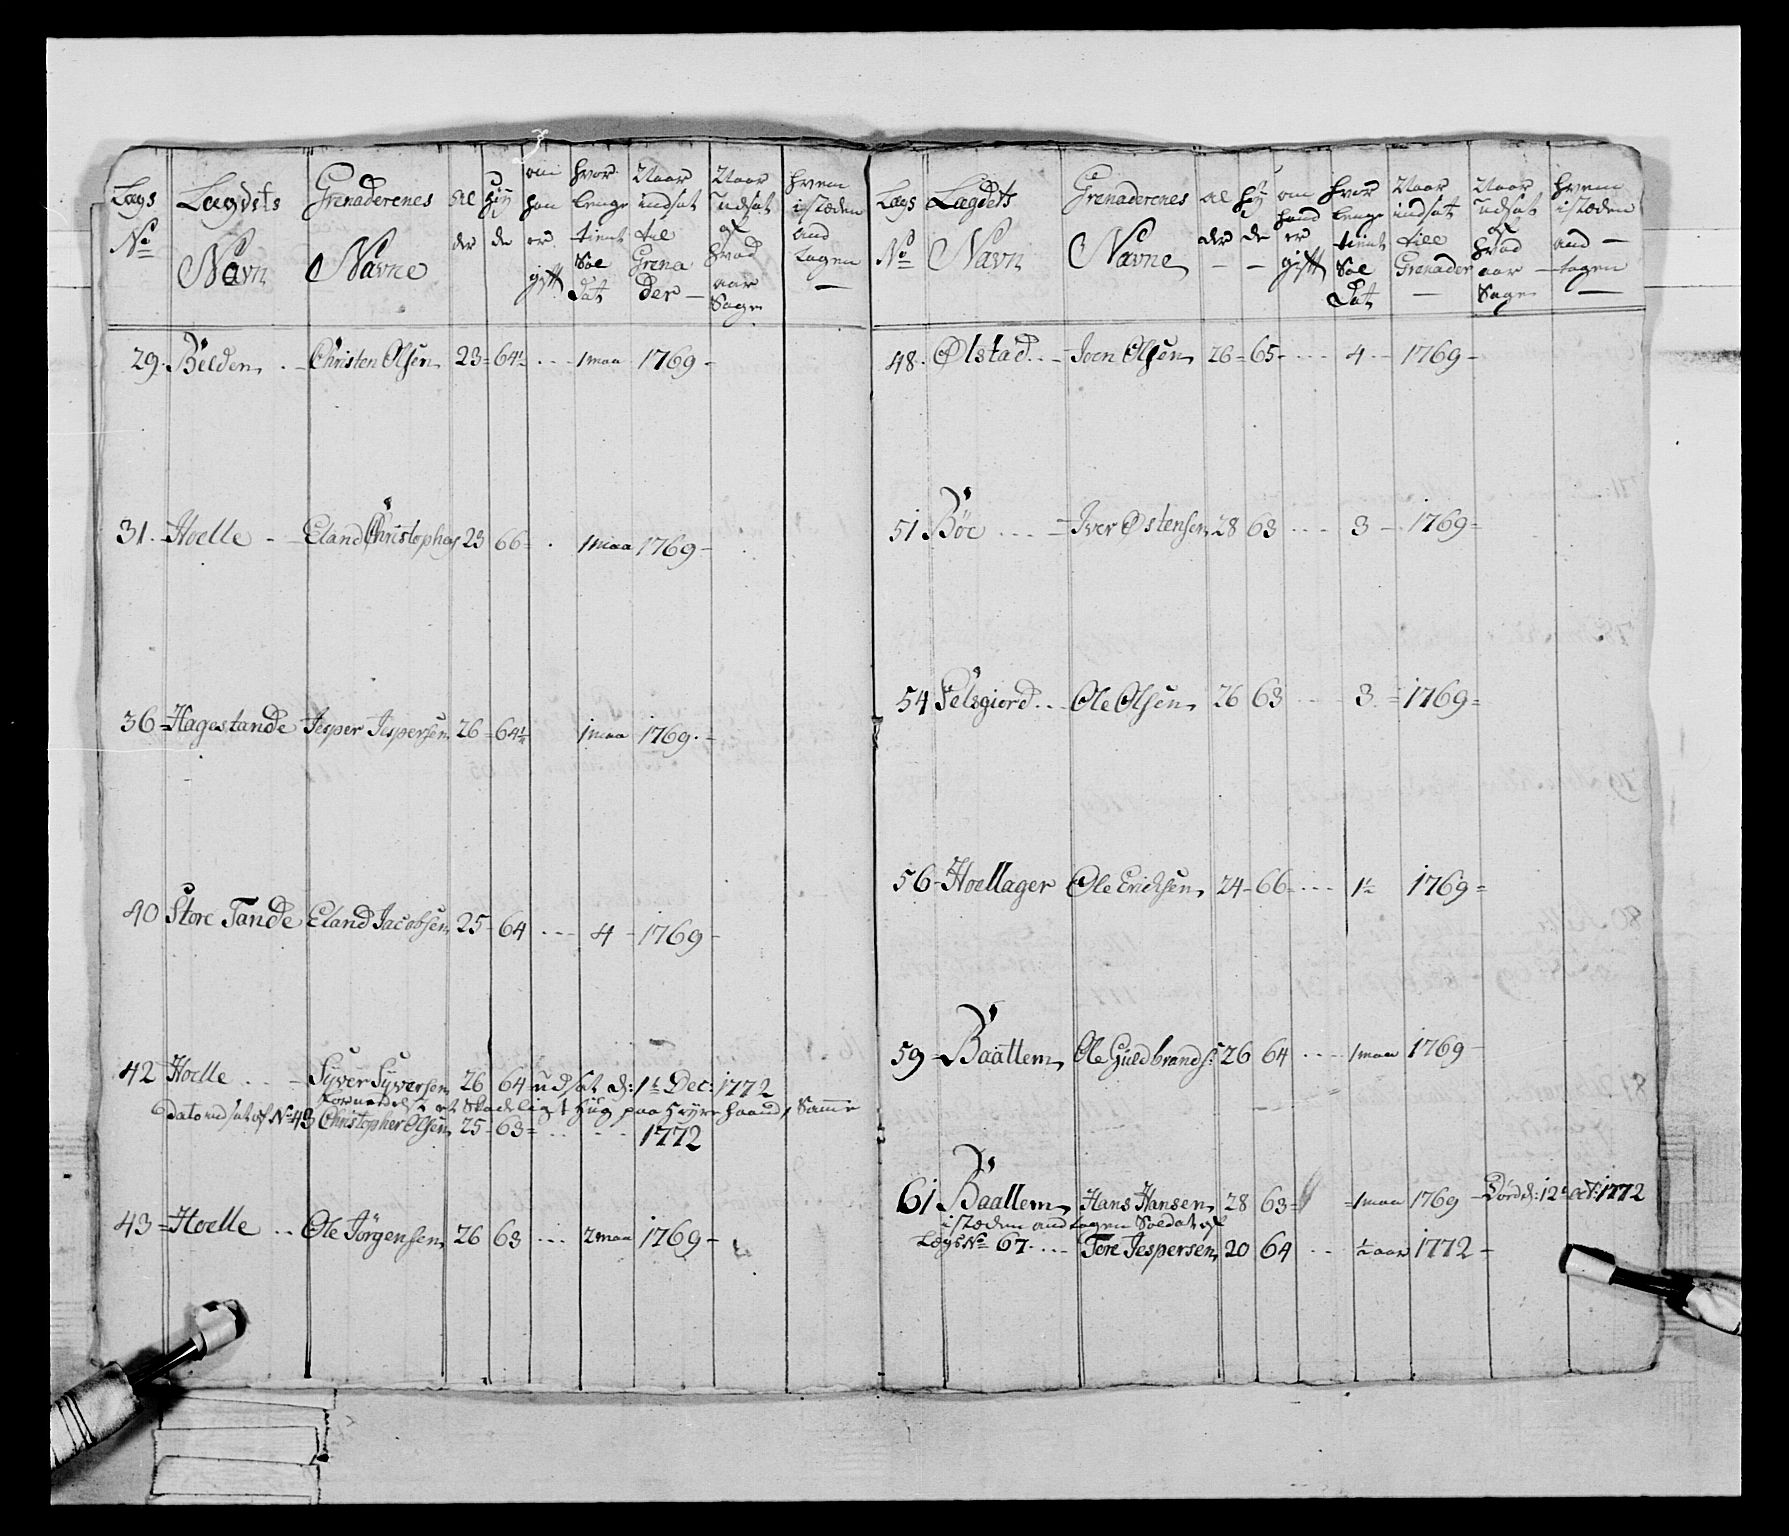 Lægs No Lægdets Navn Grenaderenes Navne Alder Høyde om han er gift hvor lenge tient Soldat Naar indsat til Grenader Naar udsat og hvad aarsage hvem i stæden andtagen
29. Bölden Christen Olsen 23 64½ 1 maa 1769
31. Hoelle Eland Christophers 23 66 1 maa 1769
36 Hagestande Jesper Jespersen 26 64½ 1 maa 1769
40 Store Tande Eland Jacobsen 25 64 4 1769
42 Hoelle Syver Syversen 26 64 udsat d: 1t Dec: 1772
et Skadeligt Hug paa høyre haand, Samme
Dato indsat af No 43 Christopher Olsen 25 63 1772
43 Hoelle Ole Jörgensen 26 63 2 maa 1769
Lægs No Lægdets Navn Grenaderenes Navne Alder Høyde om hand er gift hvor lenge tient Soldat Naar indsat till Grenader Naar udsat og hvad aarsage hvem i stæden andtagen
48. Ølstad Joen Olsen 26 65 4 1769
51 Böe Iver Østensen 28 63 3 1769
54 Ole Olsen 26 63 3 1769
56 Hoellager Ole Erichsen 24 66 1½ 1769
59 Baattem Ole Guldbrands: 26 64 1 maa 1769
61 Baattem Hans Hansen 28 63 1 maa 1769 Död d: 12t Oct: 1772
i stæden andtagen Soldat af
Lægs No 67 Tore Jespersen 20 64 ½ aar 1772